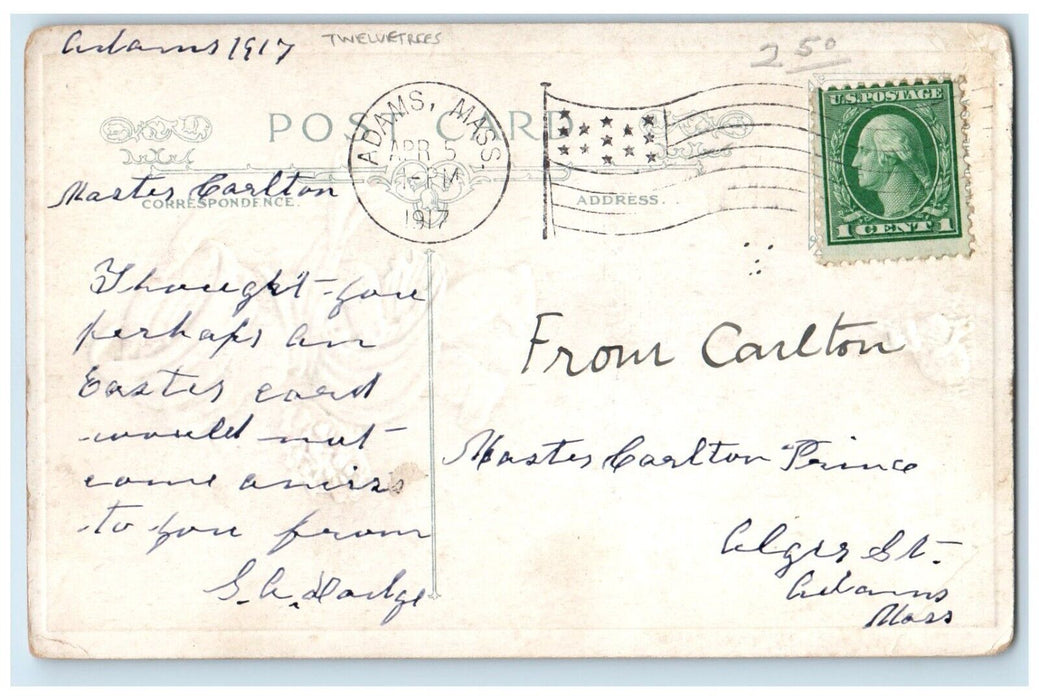 Adams 1917
TWELVETREES
2 50
POST CARD
ADAMS, MASS.
APR 5
-PM
1917
U.S. POSTAGE
1 CENT 1
CORRESPONDENCE.
ADDRESS.
Master Carlton
Thought you
perhaps an
Easter card
would not
come amiss
to you from
S. A. Dodge
From Carlton
Master Carlton Prince
Alger St.
Adams
Mass